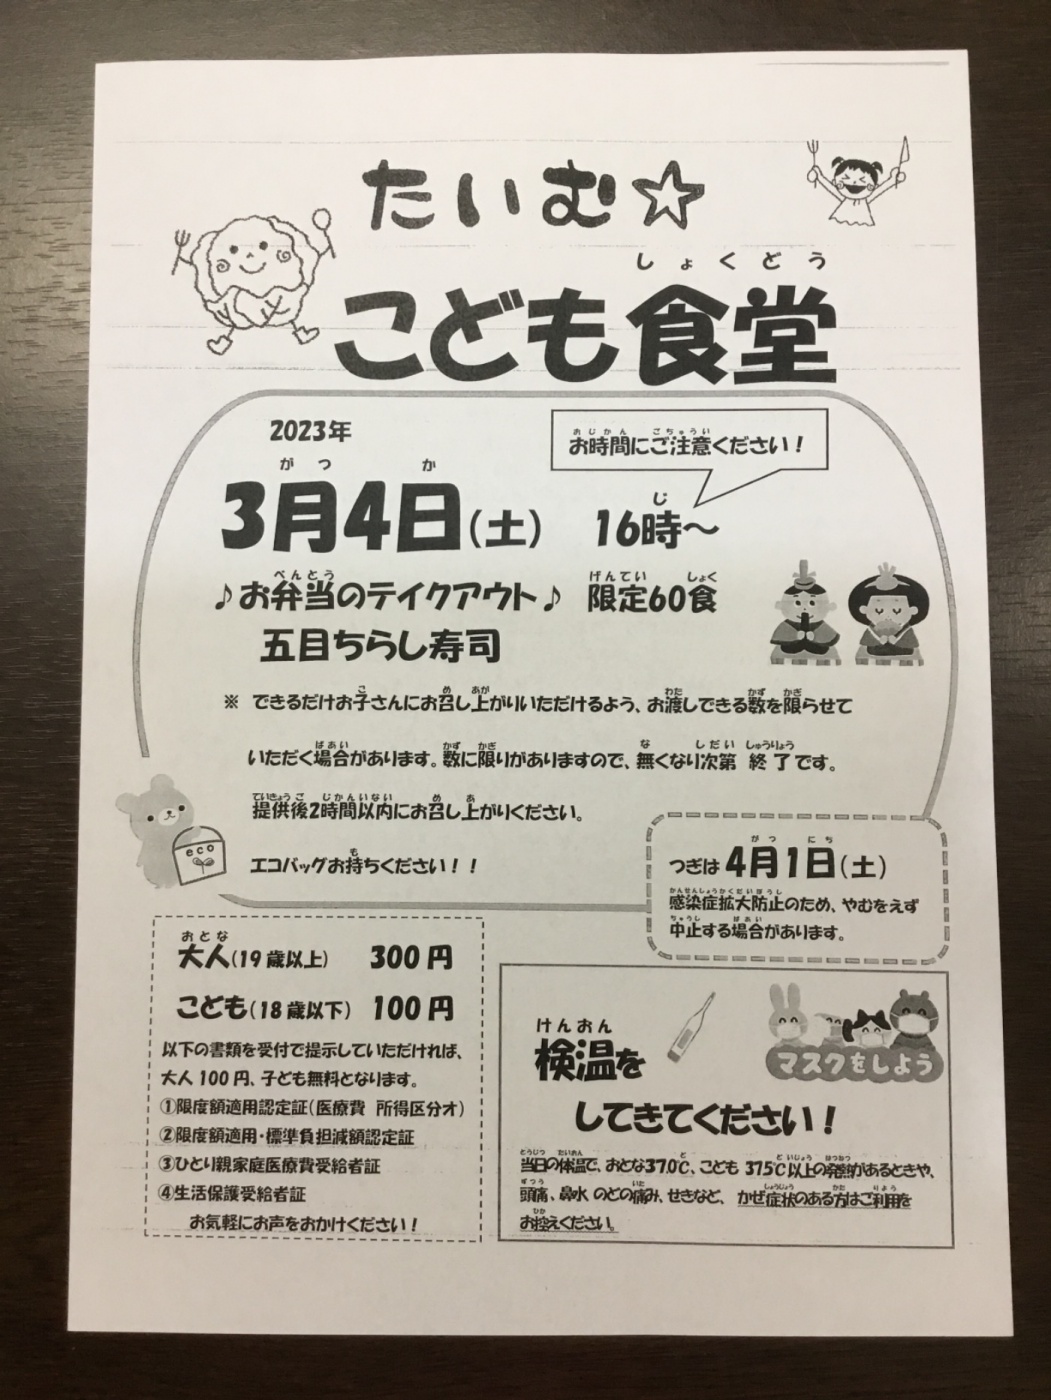 たいむ☆
しょくどう
こども食堂
2023年
おじかん ごちゅうい
お時間にご注意ください！
がつ か じ
3月4日(土) 16時～
べんとう げんてい しょく
♪お弁当のテイクアウト♪ 限定60食
五目ちらし寿司
こ め あが わた かず かぎ
※ できるだけお子さんにお召し上がりいただけるよう、お渡しできる数を限らせて
ばあい かず かぎ な しだい しゅうりょう
いただく場合があります。数に限りがありますので、無くなり次第 終了です。
ていきょうご じかんいない め あ
提供後2時間以内にお召し上がりください。
も
エコバッグお持ちください！！
eco
がつ にち
つぎは 4月1日(土)
かんせんしょうかくだいぼうし
感染症拡大防止のため、やむをえず
ちゅうし ばあい
中止する場合があります。
おとな
大人(19歳以上) 300円
こども(18歳以下) 100円
以下の書類を受付で提示していただければ、
大人100円、子ども無料となります。
①限度額適用認定証(医療費 所得区分オ)
②限度額適用・標準負担減額認定証
③ひとり親家庭医療費受給者証
④生活保護受給者証
お気軽にお声をおかけください！
けんおん
検温を
マスクをしよう
してきてください！
とうじつ たいおん ど ど いじょう はつねつ
当日の体温で、おとな37.0℃、こども 37.5℃以上の発熱があるときや、
ずつう いた しょうじょう かた りよう
頭痛、鼻水 のどの痛み、せきなど、 かぜ症状のある方はご利用を
ひか
お控えください。